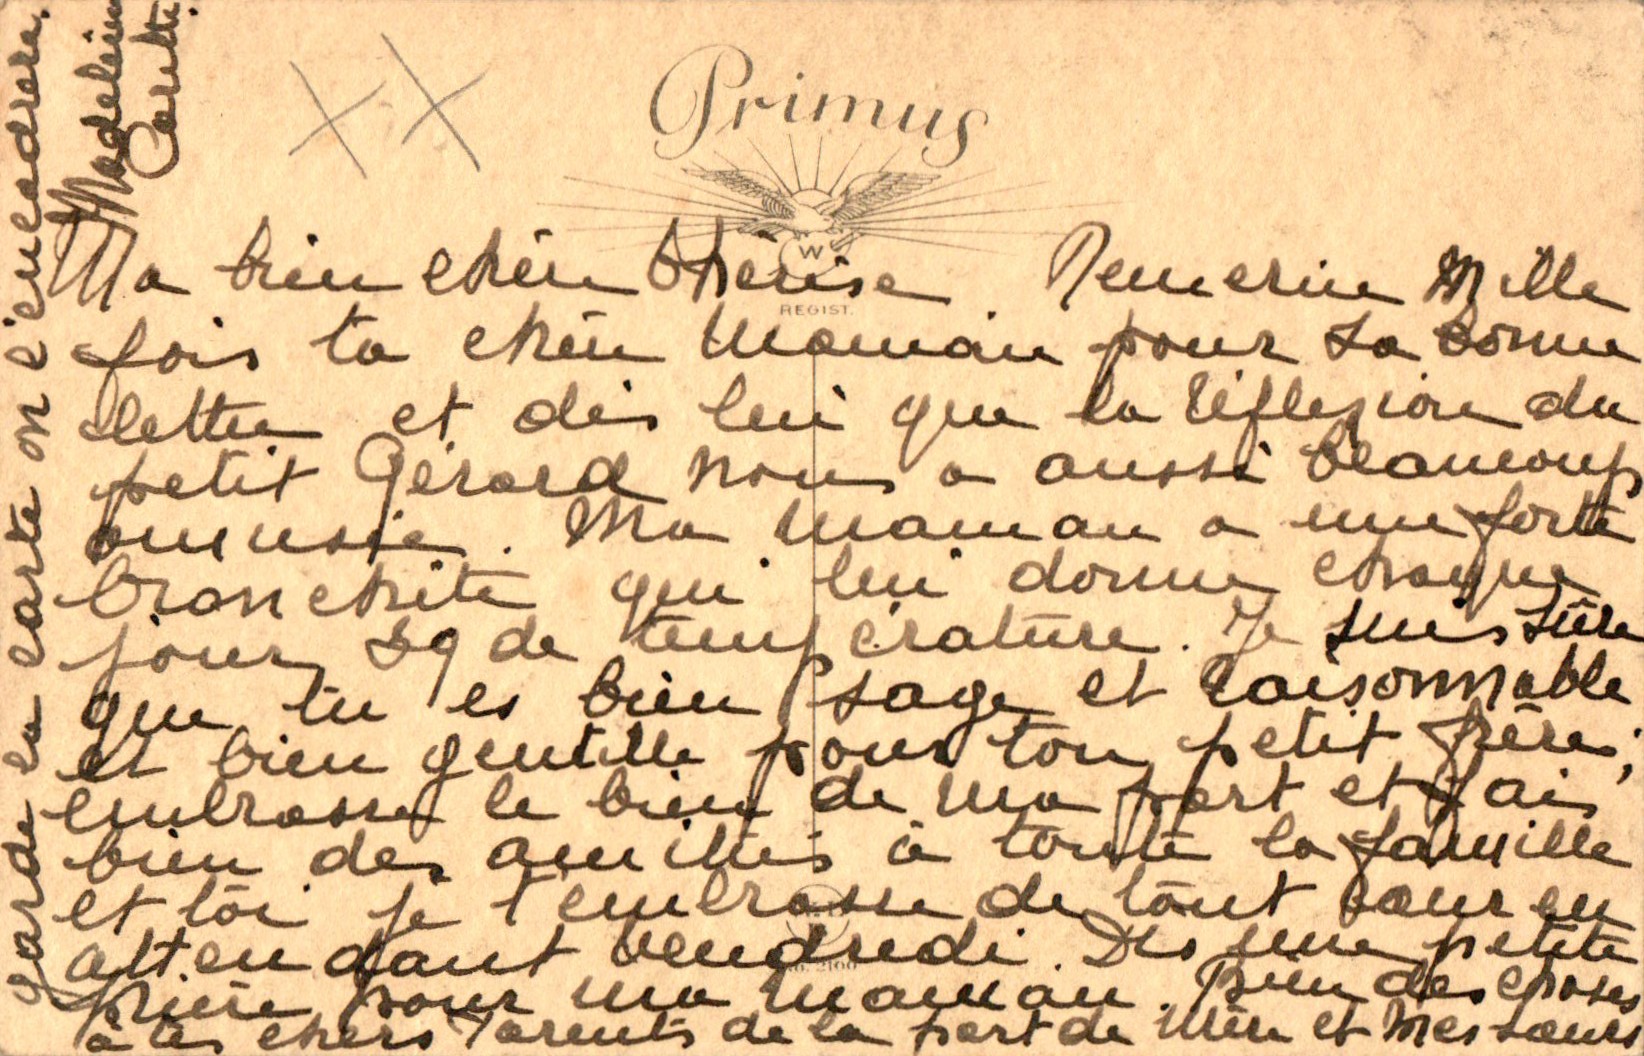 Primus
W
REGIST.
Ma bien chère Thérèse. Remercie Mille
fois ta chère Maman pour sa bonne
lettre et dis lui que la réflexion du
petit Gérard nous a aussi beaucoup
amusée. Ma maman a une forte
bronchite qui lui donne chaque
jour 39 de température. Je suis sûre
que tu es bien sage et raisonnable
et bien gentille pour ton petit frère;
embrasse le bien de ma part et fais
bien des amitiés à toute la famille
et toi je t'embrasse de tout cœur en
attendant vendredi. Dis une petite
prière pour ma maman. Bien des choses
à tes chers Parents de la part de Mère et Mes sœurs
garde la carte on l'encadrera.
Madeleine